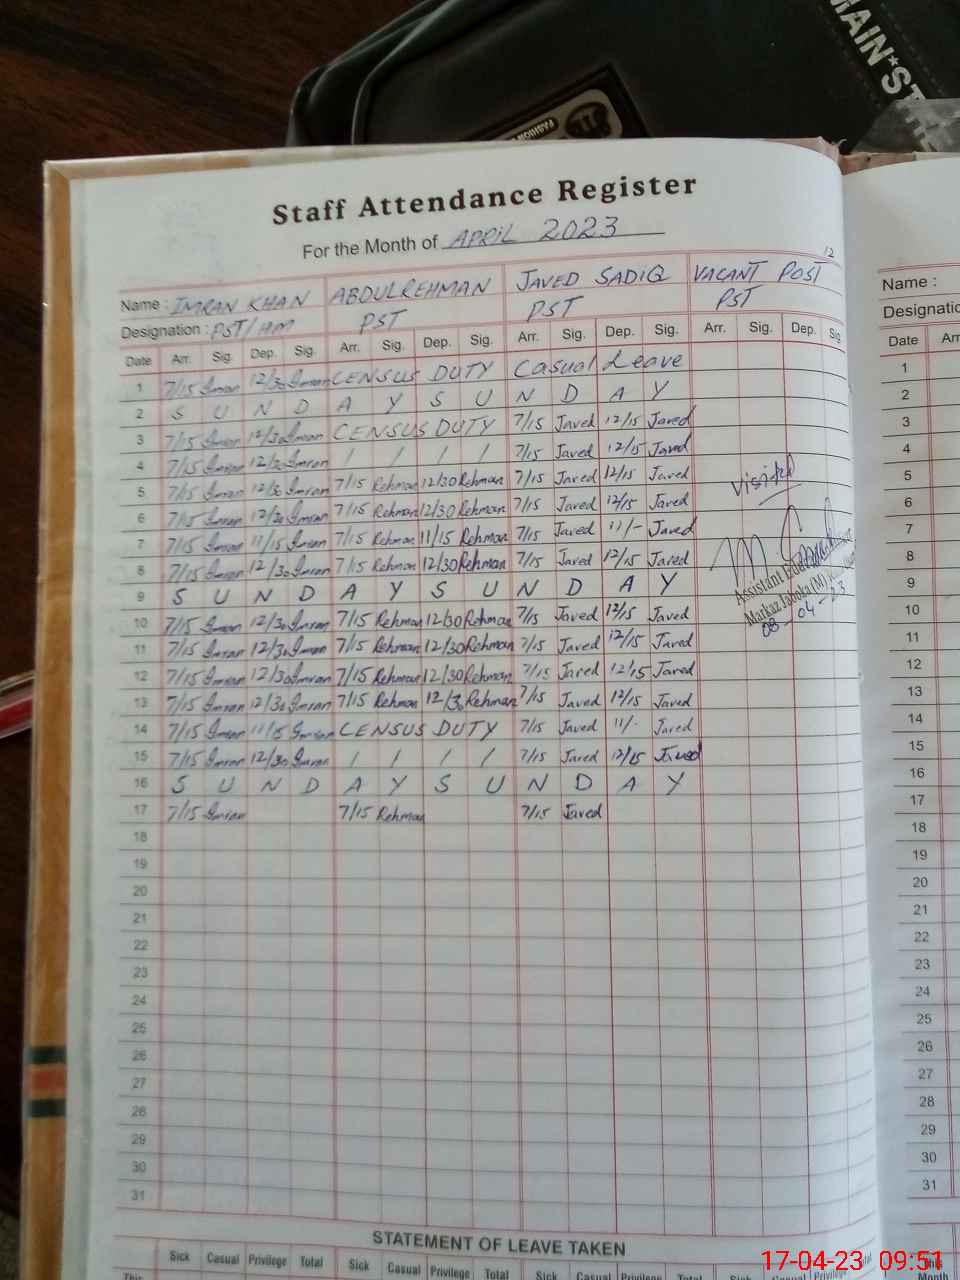 MAIN★ST
FASHION
Staff Attendance Register
For the Month of APRIL 2023
12
Name : IMRAN KHAN ABDULREHMAN JAVED SADIQ VACANT POST
Designation : PST/HM PST PST PST
Date Arr. Sig. Dep. Sig. Arr. Sig. Dep. Sig. Arr. Sig. Dep. Sig. Arr. Sig. Dep. Sig
1 7/15 Imran 12/30 Imran CENSUS DUTY Casual Leave
2 S U N D A Y S U N D A Y
3 7/15 Imran 12/30 Imran CENSUS DUTY 7/15 Javed 12/15 Javed
4 7/15 Imran 12/30 Imran / / / / 7/15 Javed 12/15 Javed
5 7/15 Imran 12/30 Imran 7/15 Rehman 12/30 Rehman 7/15 Javed 12/15 Javed
6 7/15 Imran 12/30 Imran 7/15 Rehman 12/30 Rehman 7/15 Javed 12/15 Javed
7 7/15 Imran 11/15 Imran 7/15 Rehman 11/15 Rehman 7/15 Javed 11/- Javed
8 7/15 Imran 12/30 Imran 7/15 Rehman 12/30 Rehman 7/15 Javed 12/15 Javed
9 S U N D A Y S U N D A Y
10 7/15 Imran 12/30 Imran 7/15 Rehman 12/30 Rehman 7/15 Javed 12/15 Javed
11 7/15 Imran 12/30 Imran 7/15 Rehman 12/30 Rehman 7/15 Javed 12/15 Javed
12 7/15 Imran 12/30 Imran 7/15 Rehman 12/30 Rehman 7/15 Javed 12/15 Javed
13 7/15 Imran 12/30 Imran 7/15 Rehman 12/30 Rehman 7/15 Javed 12/15 Javed
14 7/15 Imran 11/15 Imran CENSUS DUTY 7/15 Javed 11/- Javed
15 7/15 Imran 12/30 Imran / / / / 7/15 Javed 12/15 Javed
16 S U N D A Y S U N D A Y
17 7/15 Imran 7/15 Rehman 7/15 Javed
18
19
20
21
22
23
24
25
26
27
28
29
30
31
visited
Assistant
Markaz Jaboka (M)
08-04-23
STATEMENT OF LEAVE TAKEN
Sick Casual Privilege Total Sick Casual Privilege Total Sick Casual Privilege Total Sick Casual Privilege Total
This
Name :
Designatio
Date Arr
1
2
3
4
5
6
7
8
9
10
11
12
13
14
15
16
17
18
19
20
21
22
23
24
25
26
27
28
29
30
31
This
Month
17-04-23 09:51